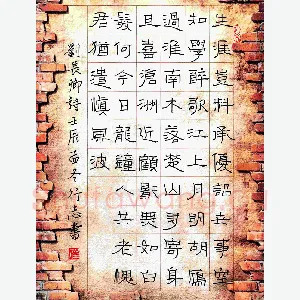 生涯豈料承優詔世事空
知學醉歌江上月明胡鴈
過淮南木落楚山多寄身
且喜滄洲近顧影無如白
髮何今日龍鍾人共老愧
君猶遣慎風波
劉長卿詩壬辰孟冬行志書